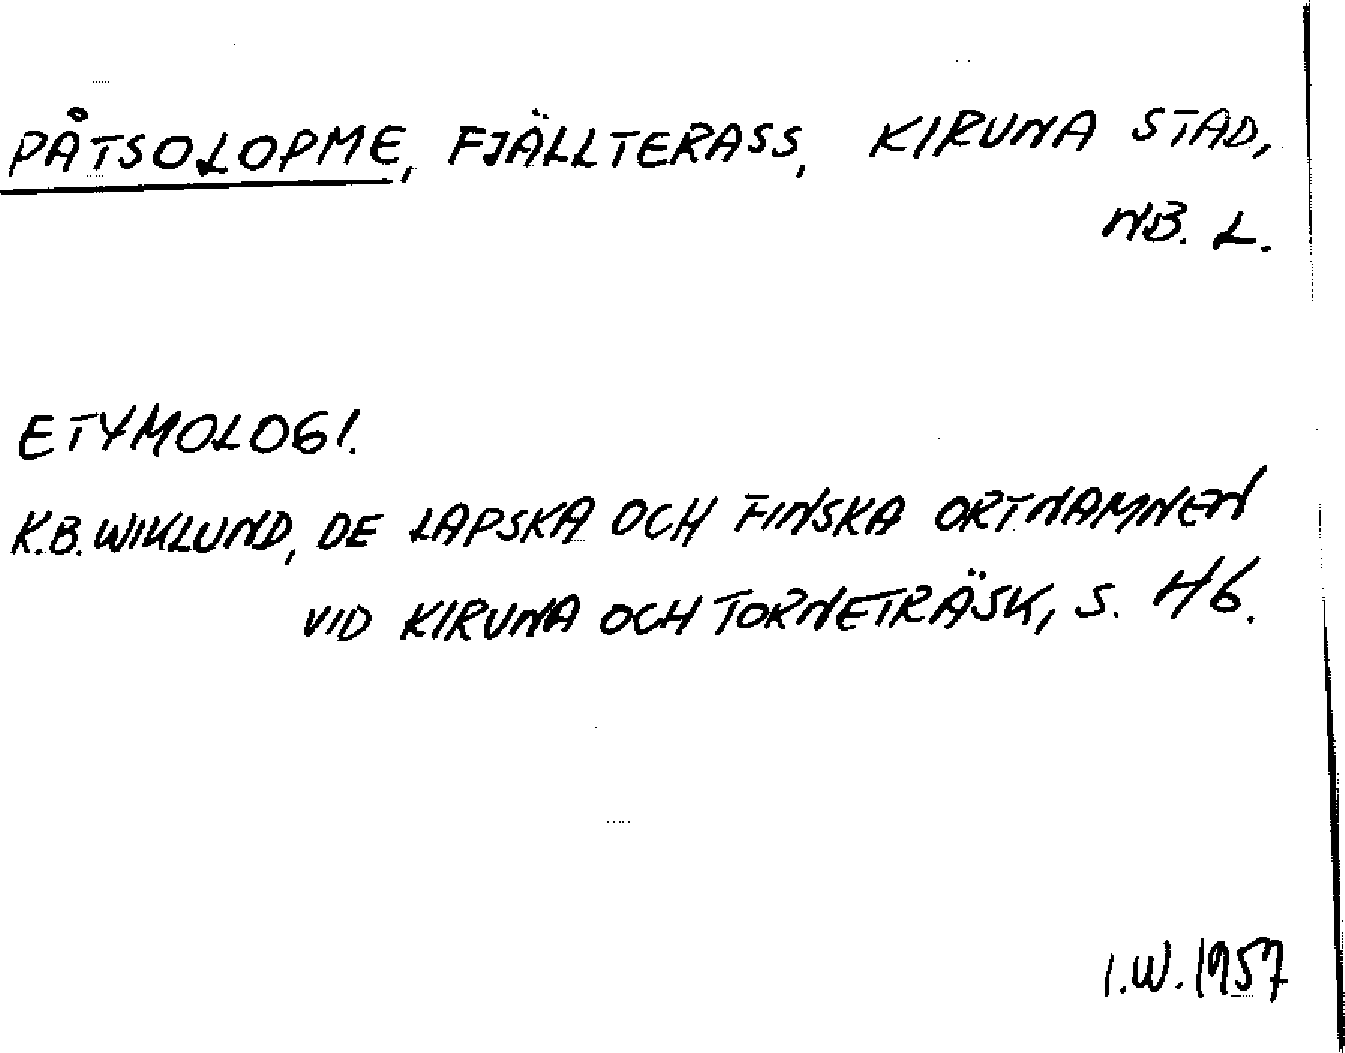 PÅTSOLOPME, FJÄLLTERASS, KIRUNA STAD,
NB. L.
ETYMOLOGI.
K.B. WIKLUND, DE LAPSKA OCH FINSKA ORTNAMNEN
VID KIRUNA OCH TORNETRÄSK, S. 46.
I.W. 1957